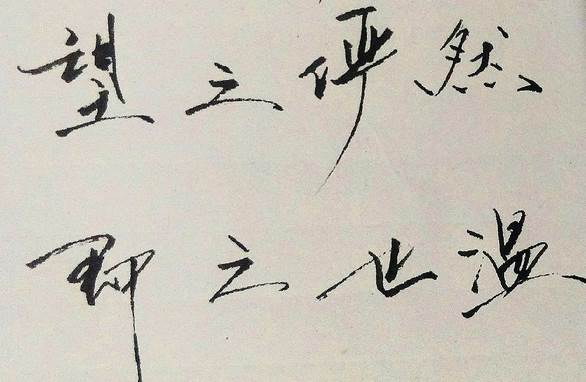 望之俨然
即之也温